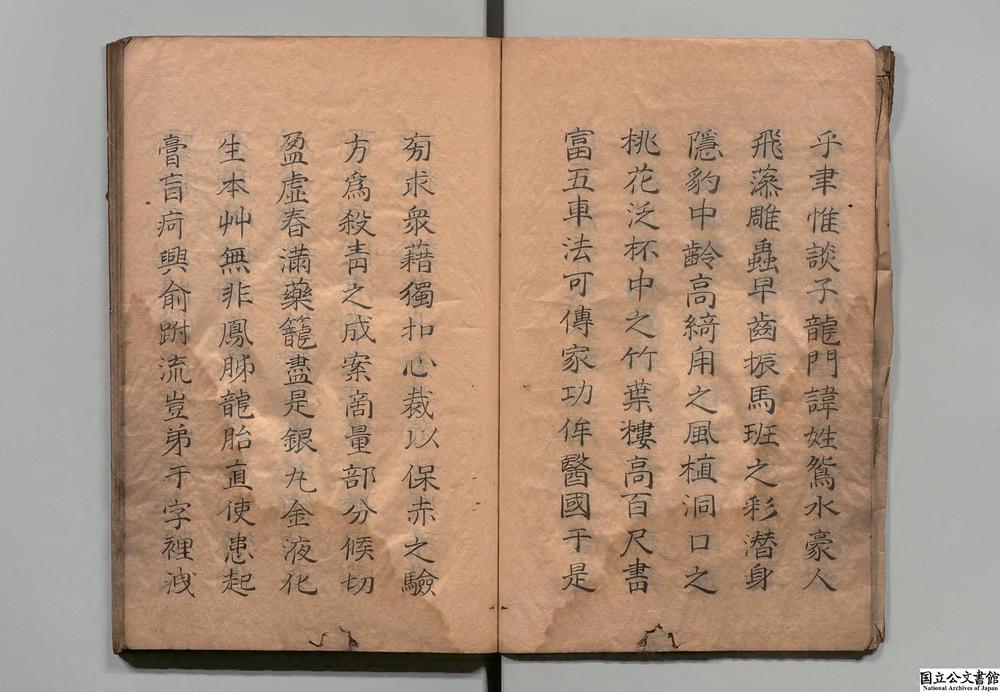 乎聿惟談子龍門諱姓鴛水豪人
飛藻雕蟲早齒振馬班之彩潛身
隱豹中齡高綺甪之風植洞口之
桃花泛杯中之竹葉樓高百尺書
富五車法可傳家功侔醫國于是
旁求衆藉獨扣心裁以保赤之驗
方爲殺青之成案啇量部分候切
盈虛春滿藥籠盡是銀丸金液化
生本艸無非鳳胏龍胎直使患起
膏盲疴興俞跗流豈弟于字裡洩
国立公文書館
National Archives of Japan